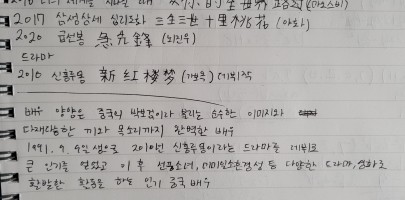 2017 삼생삼세 십리도화 三生三世十里桃花 (야화)
2020 급선봉 急先鋒 (뇌진우)
드라마
2010 신홍루몽 新红楼梦 (가보옥) 데뷔작
배우 양양은 중국의 박보검이라 불리는 순수한 이미지와
다재다능한 끼와 목소리까지 완벽한 배우
1991. 9. 9일생으로 2010년 신홍루몽이라는 드라마로 데뷔로
큰 인기를 얻었고 이 후 선풍소녀, 미미일소흔경성 등 다양한 드라마, 영화로
활발한 활동을 하는 인기 중국 배우